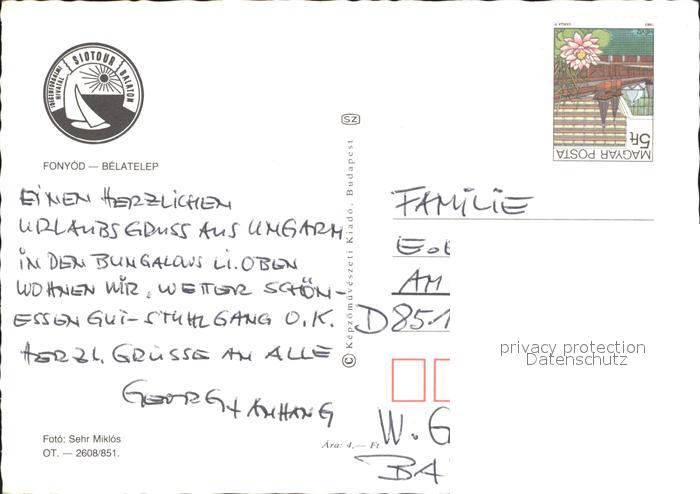 SIOTOUR BALATON
IDEGENFORGALMI HIVATAL
FONYÓD — BÉLATELEP
EINEN HERZLICHEN
URLAUBSGRUSS AUS UNGARN
IN DEN BUNGALOWS LI. OBEN
WOHNEN WIR, WETTER SCHÖN–
ESSEN GUT–STUHLGANG O.K.
HERZL. GRÜSSE AN ALLE
GEORG + ANHANG
Fotó: Sehr Miklós
OT. — 2608/851.
SZ
© Képzőművészeti Kiadó, Budapest
Ára: 4,— Ft
5Ft
MAGYAR POSTA
FAMILIE
AM
D851
W. G
BA
privacy protection
Datenschutz